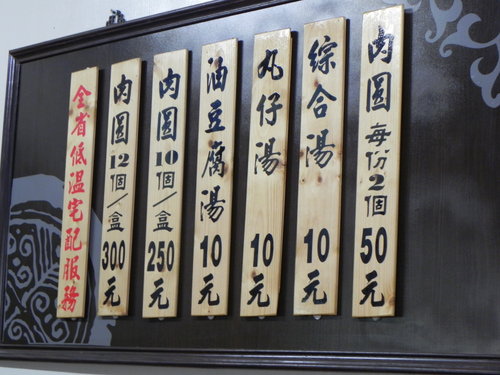 肉圓每份2個50元
綜合湯10元
丸仔湯10元
油豆腐湯10元
肉圓10個/盒250元
肉圓12個/盒300元
全省低溫宅配服務